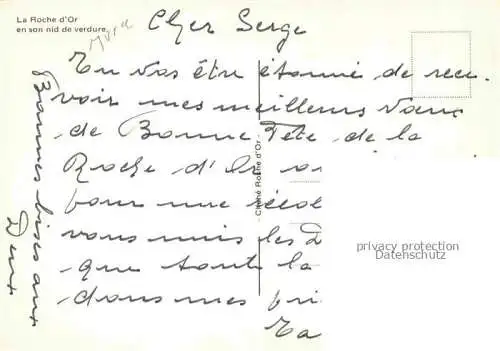 La Roche d'Or
en son nid de verdure
Cher Serge
Tu vas être étonné de rece
voir mes meilleurs vœux
de Bonne Fête de la
Roche d'Or
pour une récol
vous mais les D
que toute la
dans mes pri
Ta
Bonnes bises aux
Deux
Cliché Roche d'Or
privacy protection
Datenschutz